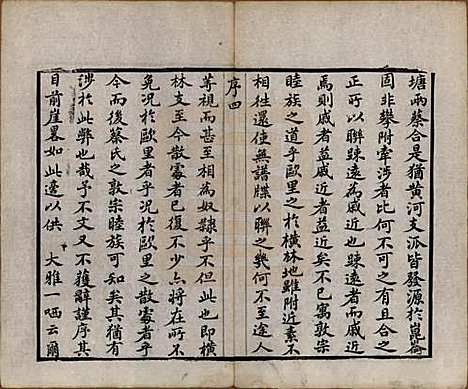 塘兩蔡合是猶黃河支派皆發源於崑崙
固非攀附牽涉者比何不可之有且合之
正所以聯踈遠為戚近也以踈遠者而戚近
焉則戚者益戚近者益近矣不幾敦宗
睦族之道乎歐里之於橫林地雖附近素不
相往還使無譜牒以聯之幾何不至途人
序四
等視而甚至相為奴隸乎不但此也即橫
林支至今散處者已復不少亦將在所不
免况於歐里者乎况於歐里之散處者乎
今而後蔡氏之敦宗睦族可知矣其猶有
涉於此弊也哉予不文又不獲辭謹序其
目前崖畧如此遂以供 大雅一哂云爾